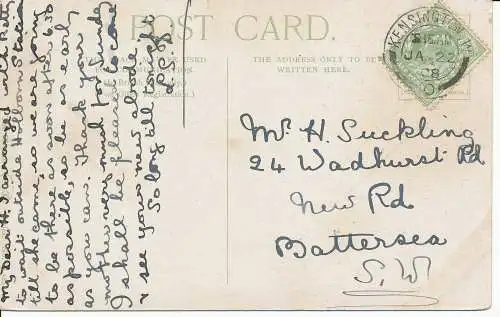 POST CARD.
THE ADDRESS ONLY TO BE
WRITTEN HERE.
KENSINGTON
JA 22
08
Mr H. Suckling
24 Wadhurst Rd
New Rd
Battersea
S.W
My dear H. I arranged with
to wait outside Holborn
till she came, so we are going
to be there as soon after 6.30
as possible, so be as early
as you can. Thank your
mother very much for
I shall be pleased to come
& see your new abode
So long till tonight